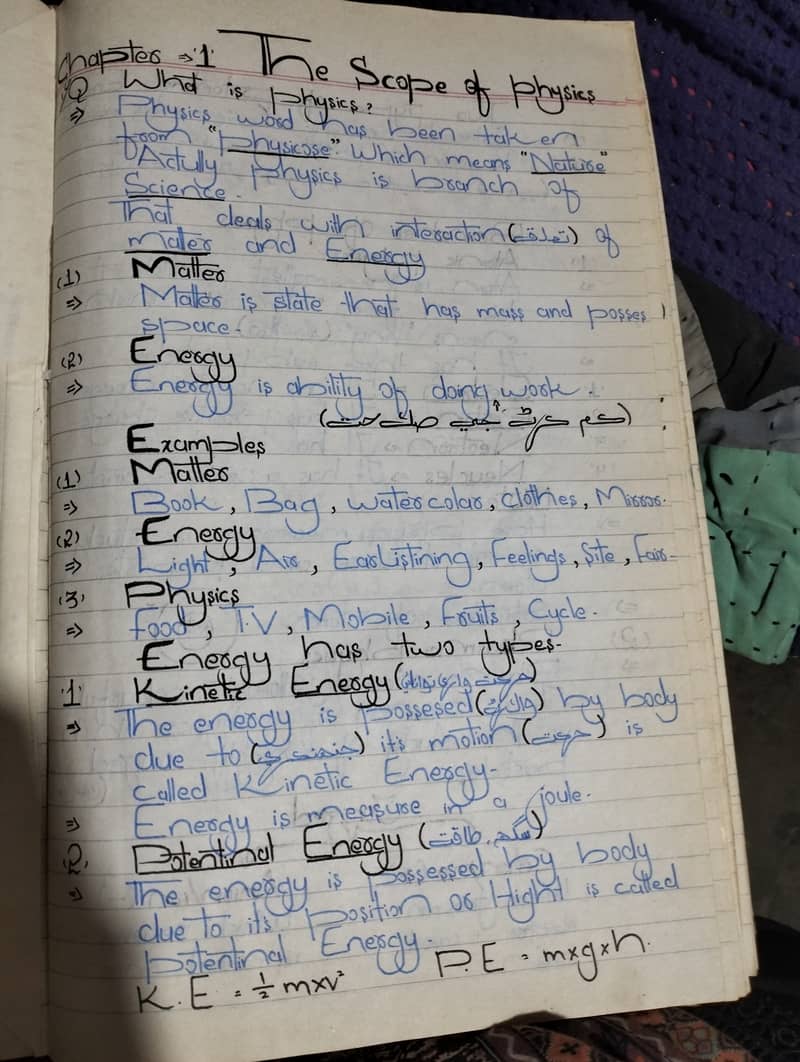 Chapter ⇒ "1" The Scope of Physics
Q What is physics?
⇒ Physics word has been taken
from "Physicose". Which means "Nature"
Actully physics is branch of
Science.
That deals with interaction (تعلق) of
mater and Energy
(1) Matter
⇒ Matter is state that has mass and posses
space.
(2) Energy
⇒ Energy is ability of doing work.
Examples
(1) Matter
⇒ Book, Bag, watercolar, clothies, Mirror.
(2) Energy
⇒ Light, Air, EarListining, Feelings, Site, Fair-
(3) Physics
⇒ Food, T.V, Mobile, Fruits, Cycle.
Energy has two types-
1 Kinetic Energy
⇒ The energy is possesed by body
due to its motion is
called Kinetic Energy-
⇒ Energy is measure in a joule.
2, Potentinal Energy
⇒ The energy is possessed by body
due to its position or Hight is called
potentinal Energy.
K.E = ½ m×v² P.E = m×g×h.